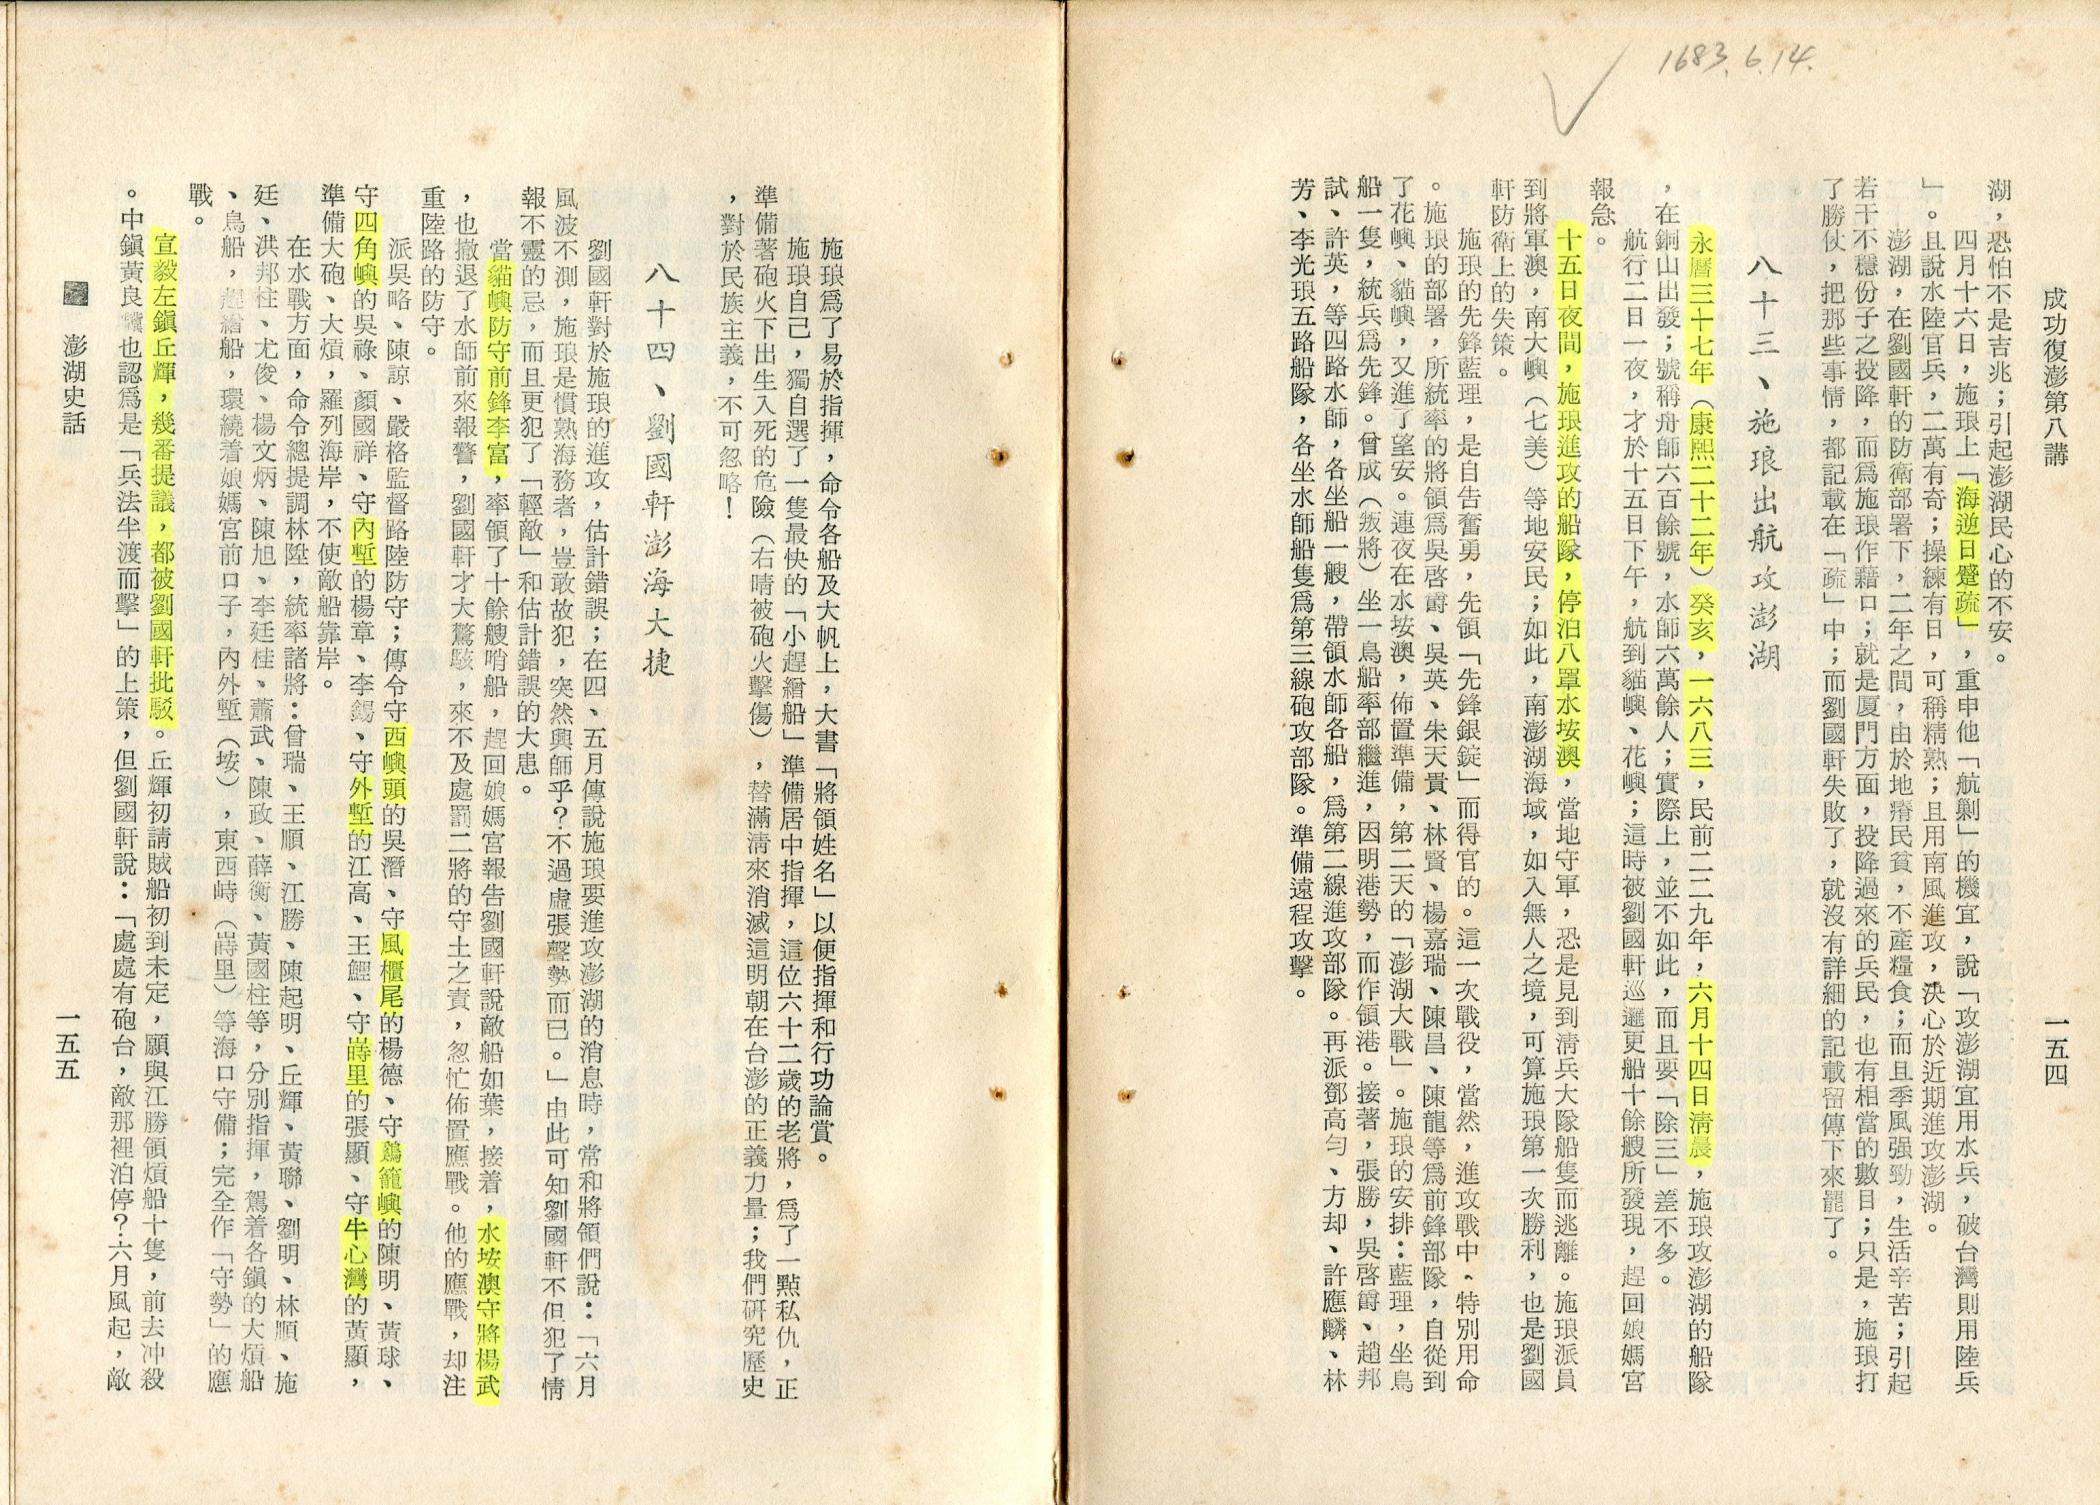 1683.6.14.
成功復澎第八講
一五四
湖，恐怕不是吉兆；引起澎湖民心的不安。
四月十六日，施琅上「海逆日蹙疏」，重申他「航剿」的機宜，說「攻澎湖宜用水兵，破台灣則用陸兵
」。且說水陸官兵，二萬有奇；操練有日，可稱精熟；且用南風進攻，決心於近期進攻澎湖。
澎湖，在劉國軒的防衛部署下，二年之間，由於地瘠民貧，不產糧食；而且季風强勁，生活辛苦；引起
若干不穩份子之投降，而爲施琅作藉口；就是厦門方面，投降過來的兵民，也有相當的數目；只是，施琅打
了勝仗，把那些事情，都記載在「疏」中；而劉國軒失敗了，就沒有詳細的記載留傳下來罷了。
八十三、施琅出航攻澎湖
永曆三十七年（康熙二十二年）癸亥，一六八三，民前二二九年，六月十四日淸晨，施琅攻澎湖的船隊
，在銅山出發；號稱舟師六百餘號，水師六萬餘人；實際上，並不如此，而且要「除三」差不多。
航行二日一夜，才於十五日下午，航到貓嶼、花嶼；這時被劉國軒巡邏更船十餘艘所發現，趕回娘媽宮
報急。
十五日夜間，施琅進攻的船隊，停泊八罩水垵澳，當地守軍，恐是見到淸兵大隊船隻而逃離。施琅派員
到將軍澳，南大嶼（七美）等地安民；如此，南澎湖海域，如入無人之境，可算施琅第一次勝利，也是劉國
軒防衛上的失策。
施琅的先鋒藍理，是自告奮勇，先領「先鋒銀錠」而得官的。這一次戰役，當然，進攻戰中、特別用命
。施琅的部署，所統率的將領爲吳啓爵、吳英、朱天貴、林賢、楊嘉瑞、陳昌、陳龍等爲前鋒部隊，自從到
了花嶼、貓嶼，又進了望安。連夜在水垵澳，佈置準備，第二天的「澎湖大戰」。施琅的安排：藍理，坐鳥
船一隻，統兵爲先鋒。曾成（叛將）坐一鳥船率部繼進，因明港勢，而作領港。接著，張勝，吳啓爵、趙邦
試、許英，等四路水師，各坐船一艘，帶領水師各船，爲第二線進攻部隊。再派鄧高勻、方却、許應麟、林
芳、李光琅五路船隊，各坐水師船隻爲第三線砲攻部隊。準備遠程攻擊。
施琅爲了易於指揮，命令各船及大帆上，大書「將領姓名」以便指揮和行功論賞。
施琅自己，獨自選了一隻最快的「小趕繒船」準備居中指揮，這位六十二歲的老將，爲了一點私仇，正
準備著砲火下出生入死的危險（右睛被砲火擊傷），替滿淸來消滅這明朝在台澎的正義力量；我們研究歷史
，對於民族主義，不可忽略！
八十四、劉國軒澎海大捷
劉國軒對於施琅的進攻，估計錯誤；在四、五月傳說施琅要進攻澎湖的消息時，常和將領們說：「六月
風波不測，施琅是慣熟海務者，豈敢故犯，突然興師乎？不過虛張聲勢而已。」由此可知劉國軒不但犯了情
報不靈的忌，而且更犯了「輕敵」和估計錯誤的大患。
當貓嶼防守前鋒李富，率領了十餘艘哨船，趕回娘媽宮報告劉國軒說敵船如葉，接着，水垵澳守將楊武
，也撤退了水師前來報警，劉國軒才大驚駭，來不及處罰二將的守土之責，忽忙佈置應戰。他的應戰，却注
重陸路的防守。
派吳略、陳諒、嚴格監督路陸防守；傳令守西嶼頭的吳潛、守風櫃尾的楊德、守鷄籠嶼的陳明、黃球、
守四角嶼的吳祿、顏國祥、守內塹的楊章、李錫、守外塹的江高、王鯉、守嵵里的張顯、守牛心灣的黃顯，
準備大砲、大熕，羅列海岸，不使敵船靠岸。
在水戰方面，命令總提調林陞，統率諸將：曾瑞、王順、江勝、陳起明、丘輝、黃聯、劉明、林順、施
廷、洪邦柱、尤俊、楊文炳、陳旭、李廷桂、蕭武、陳政、薛衡、黃國柱等，分別指揮，駕着各鎮的大熕船
、鳥船，趕繒船，環繞着娘媽宮前口子，內外塹（垵），東西峙（嵵里）等海口守備；完全作「守勢」的應
戰。
宣毅左鎭丘輝，幾番提議，都被劉國軒批駁。丘輝初請賊船初到未定，願與江勝領熕船十隻，前去冲殺
。中鎭黃良驥也認爲是「兵法半渡而擊」的上策，但劉國軒說：「處處有砲台，敵那裡泊停？六月風起，敵
澎湖史話
一五五